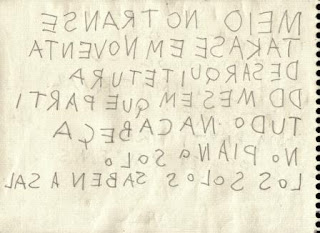 MEIO NO TRANSE
TAKASE EM NOVENTA
DESARQUITETURA
DO MES EM QUE PARTI
TUDO NA CABEÇA
NO PIANO SOLO
LOS SOLOS SABEN A SAL